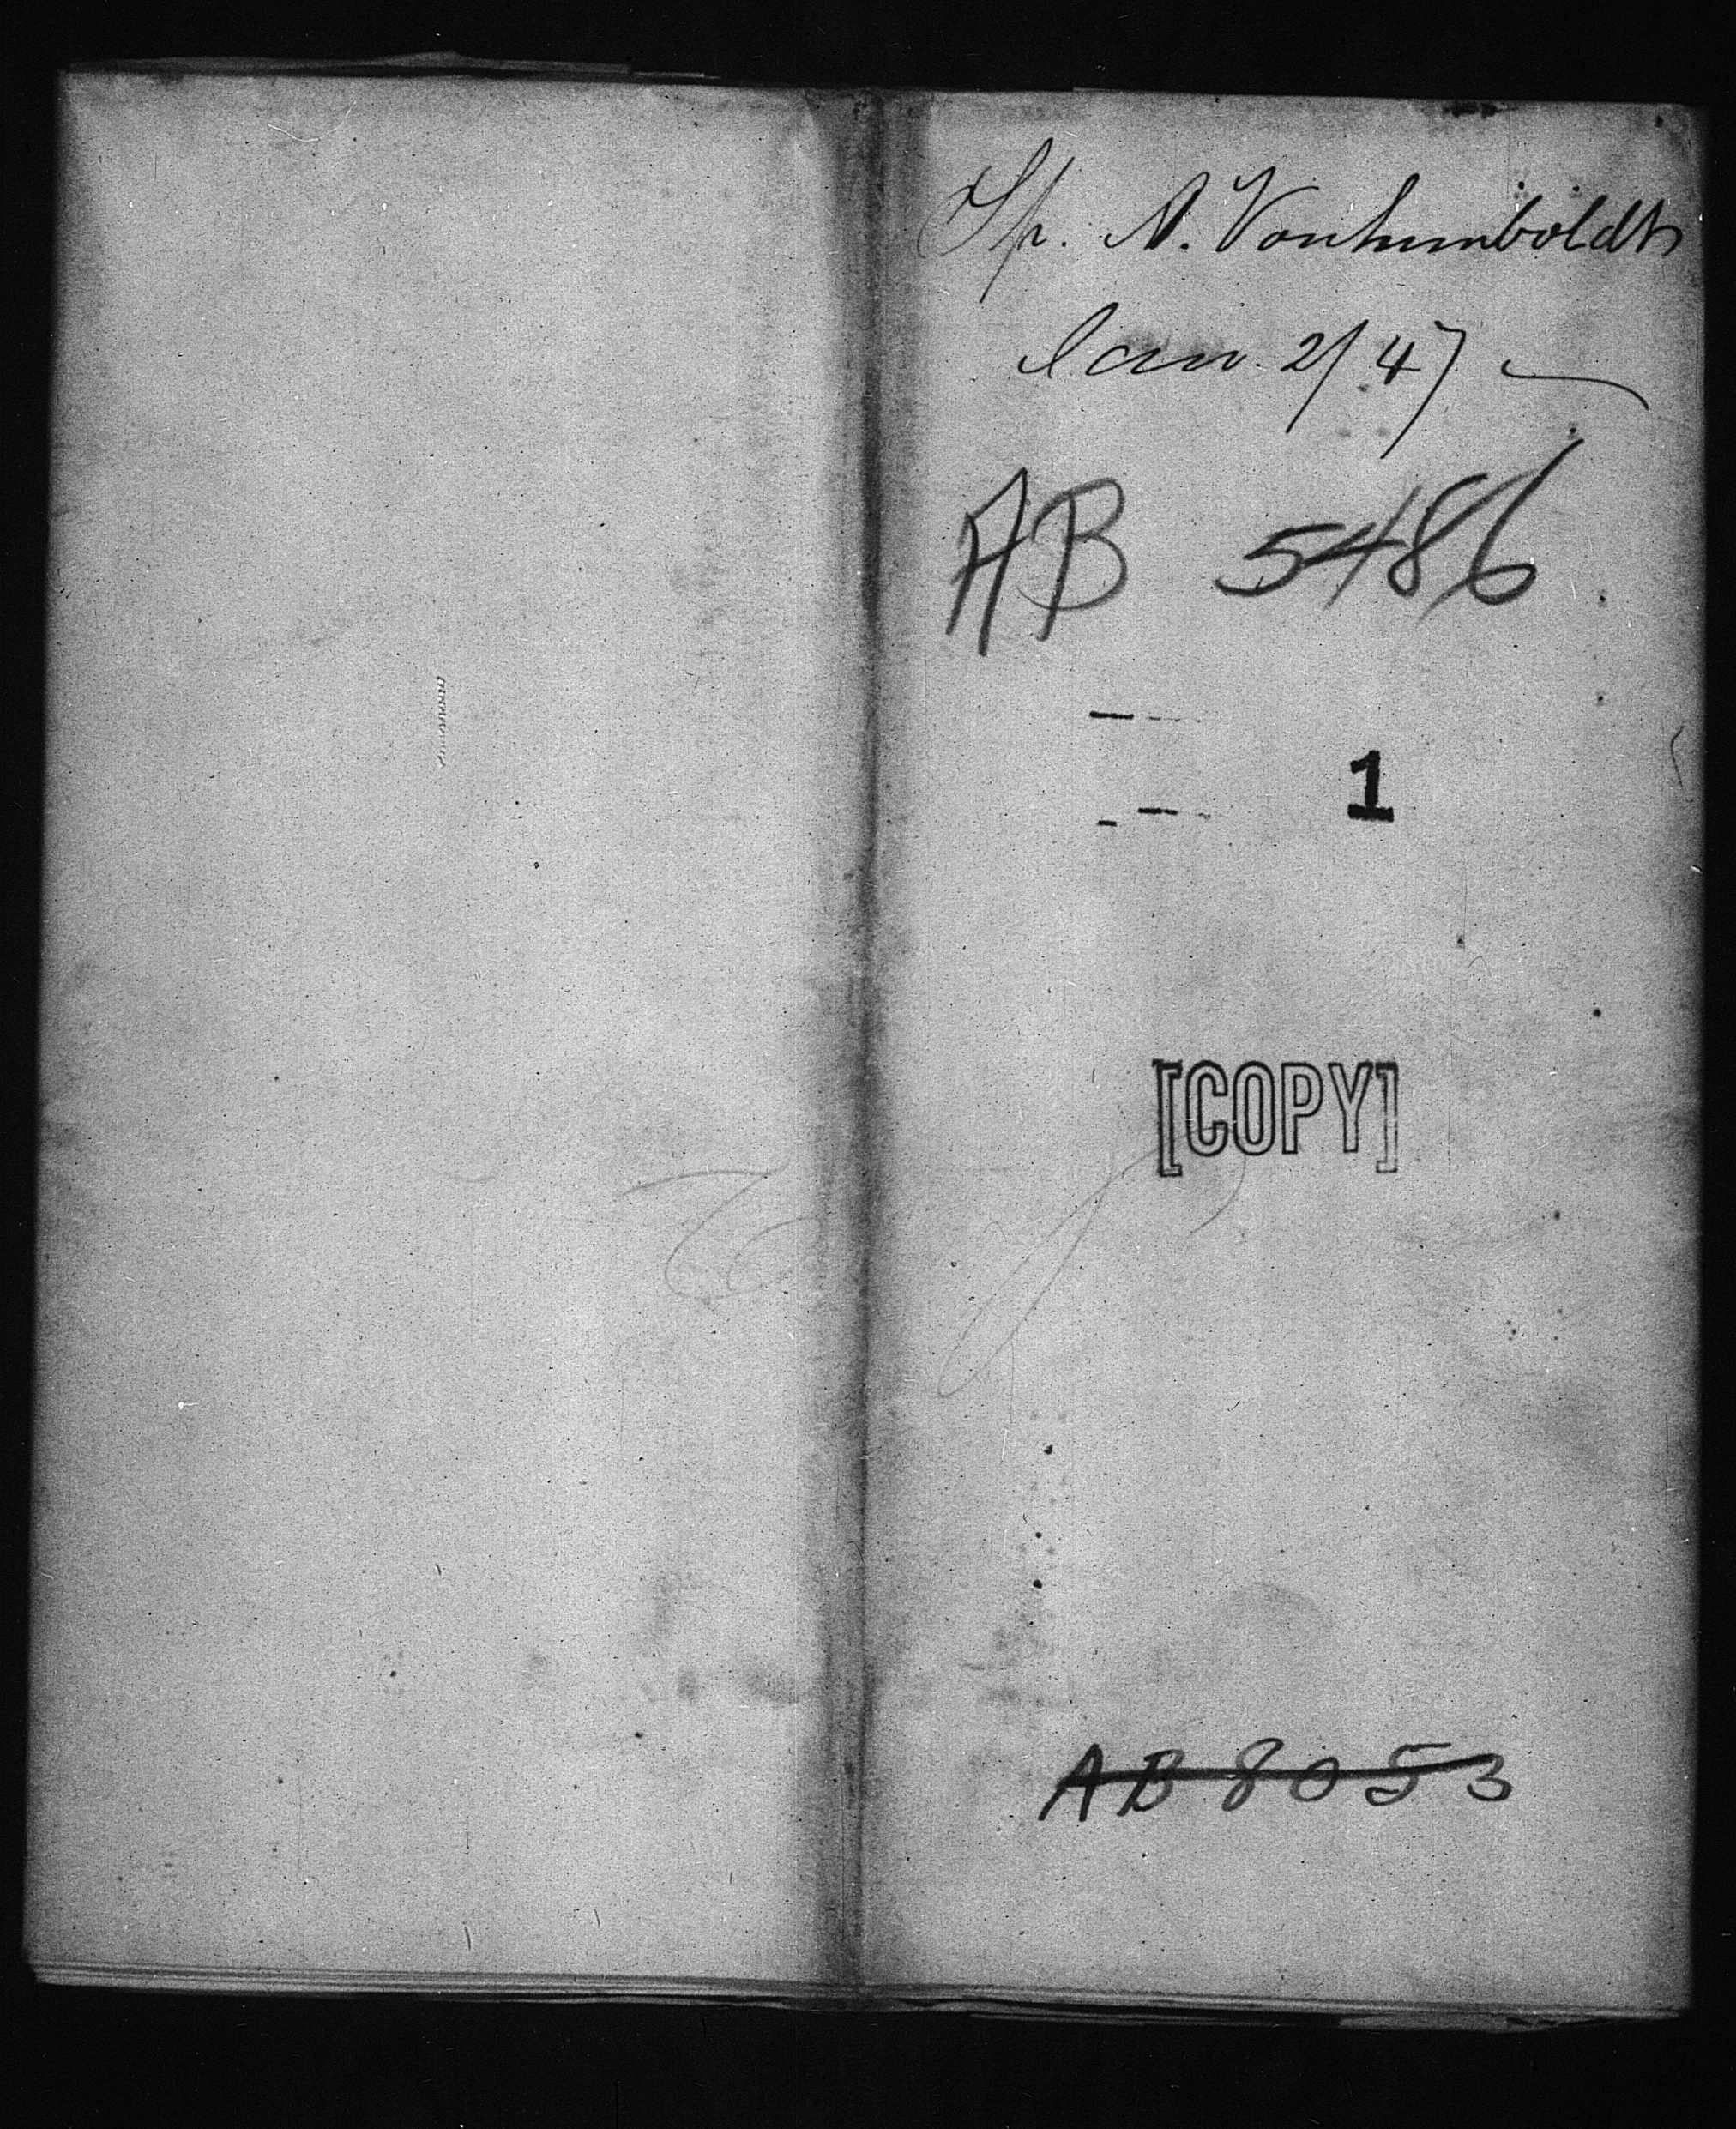 Sp. A. Vonhumboldt
Jan. 2/47
AB 5486
1
[COPY]
AB 8053